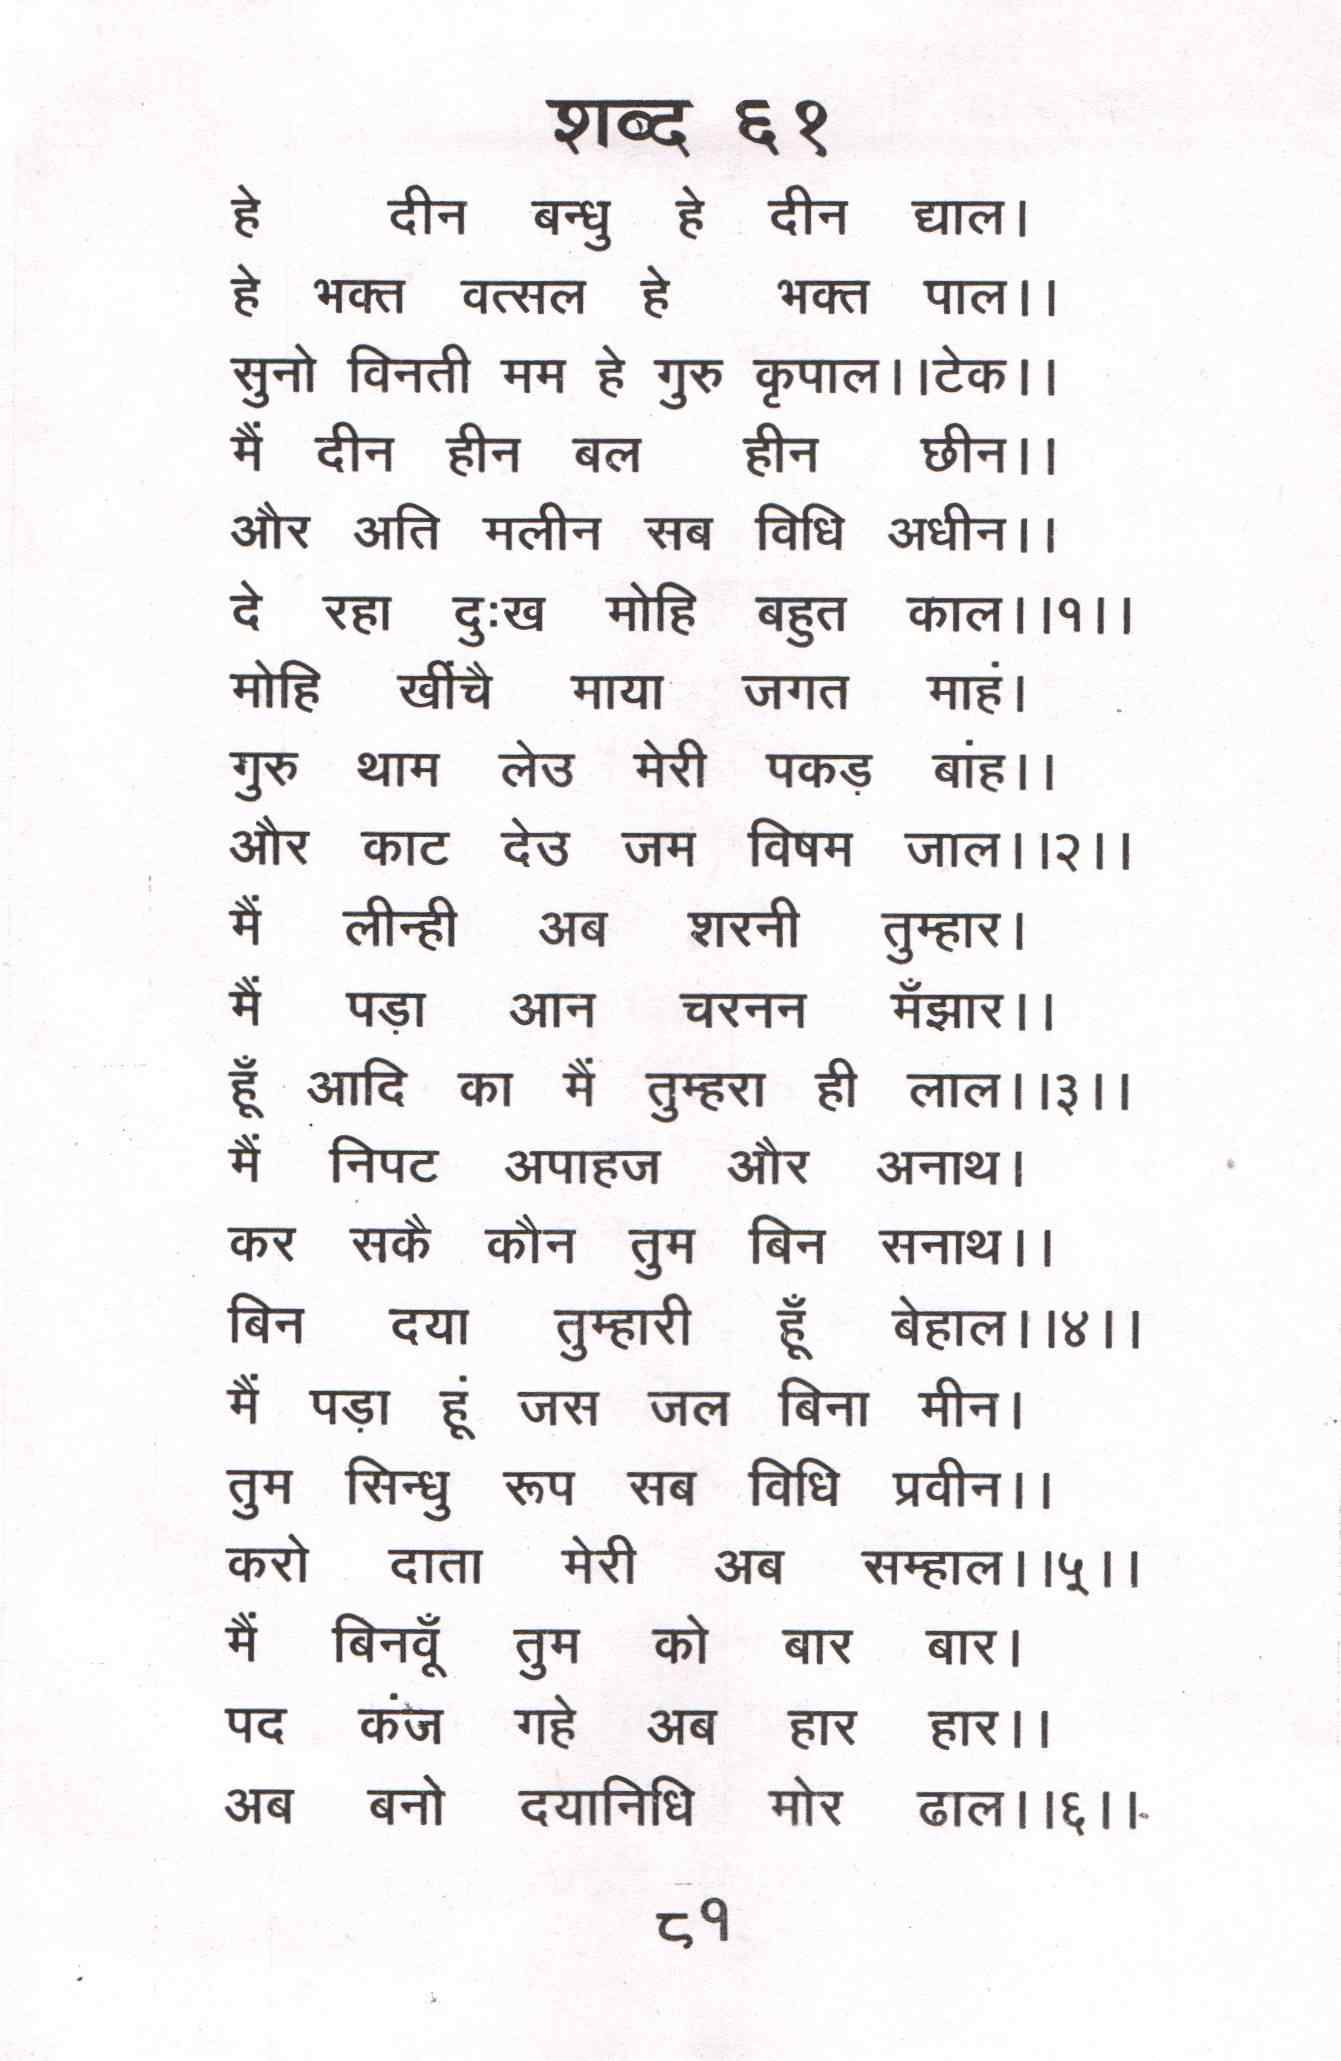 शब्द ६१
हे दीन बन्धु हे दीन द्याल।
हे भक्त वत्सल हे भक्त पाल।।
सुनो विनती मम हे गुरु कृपाल।।टेक।।
मैं दीन हीन बल हीन छीन।।
और अति मलीन सब विधि अधीन।।
दे रहा दुःख मोहि बहुत काल।।१।।
मोहि खींचै माया जगत माहं।
गुरु थाम लेउ मेरी पकड़ बांह।।
और काट देउ जम विषम जाल।।२।।
मैं लीन्ही अब शरनी तुम्हार।
मैं पड़ा आन चरनन मँझार।।
हूँ आदि का मैं तुम्हरा ही लाल।।३।।
मैं निपट अपाहज और अनाथ।
कर सकै कौन तुम बिन सनाथ।।
बिन दया तुम्हारी हूँ बेहाल।।४।।
मैं पड़ा हूं जस जल बिना मीन।
तुम सिन्धु रूप सब विधि प्रवीन।।
करो दाता मेरी अब सम्हाल।।५।।
मैं बिनवूँ तुम को बार बार।
पद कंज गहे अब हार हार।।
अब बनो दयानिधि मोर ढाल।।६।।
८१